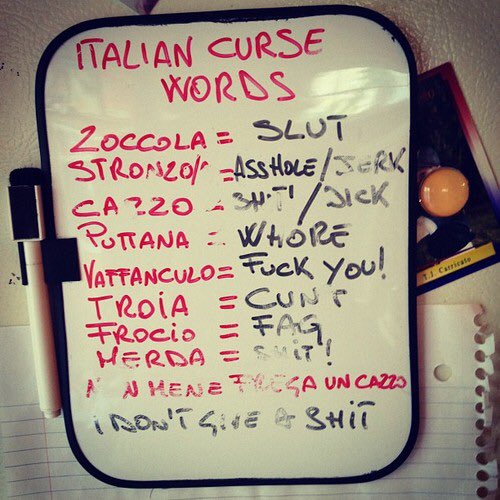 ITALIAN CURSE
WORDS
ZOCCOLA = SLUT
STRONZO/ = ASSHOLE/JERK
CAZZO = SHIT/DICK
PUTTANA = WHORE
VAFFANCULO = FUCK YOU!
TROIA = CUNT
FROCIO = FAG
MERDA = SHIT!
N N ME NE FREGA UN CAZZO
I DON'T GIVE A SHIT
T.J. Carricato